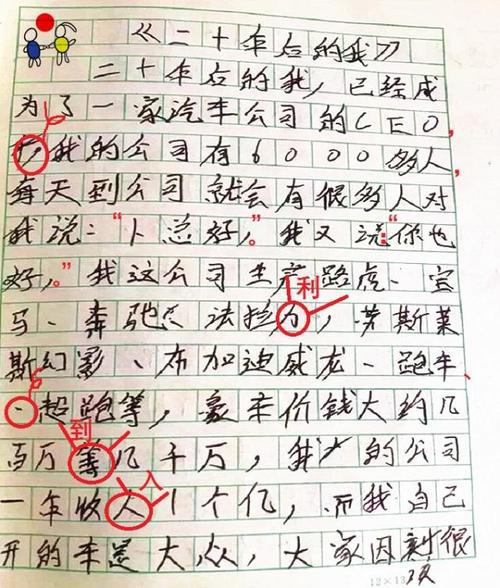 《二十年后的我》
二十年后的我,已经成
为了一家汽车公司的CEO,
我的公司有6000多人,
每天到公司就会有很多人对
我说:“卜总好,”我又说:“你也
好,”我这公司生产路虎、宝
利
马、奔驰、法拉力,劳斯莱
斯幻影、布加迪威龙、跑车、
、超跑等,豪车价钱大约几
到
百万等几千万,我的公司
入
一年收人1个亿,而我自己
开的车是大众,大家因很
12×13